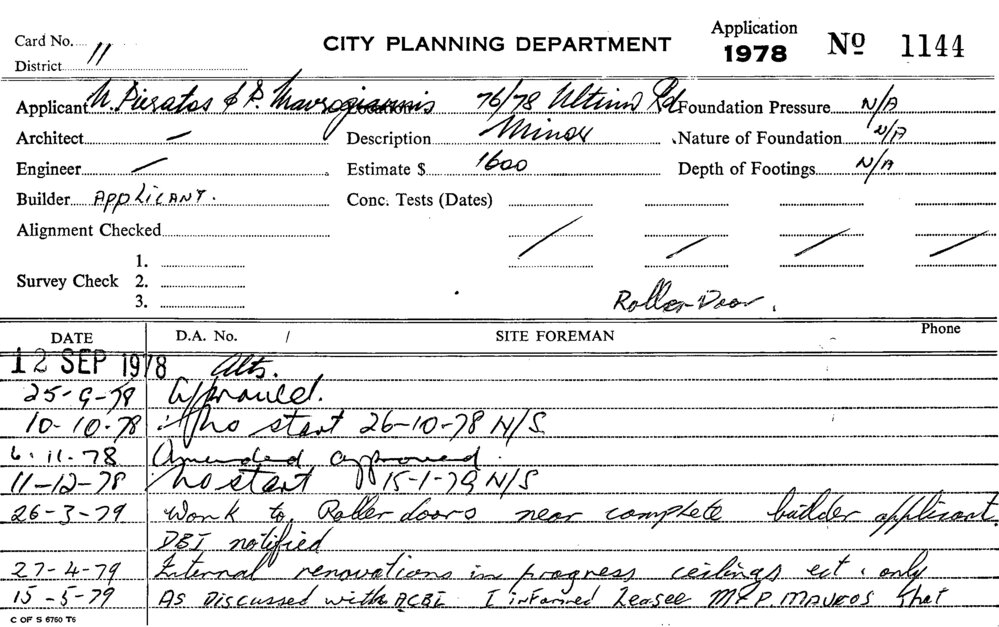 Application
Card No. 11 CITY PLANNING DEPARTMENT 1978 No 1144
District
Applicant N. Pieratos & P. Mavrogiannis Location 76/78 Ultimo Rd Foundation Pressure N/A
Architect — Description Minor Nature of Foundation N/A
Engineer / Estimate $ 1600 Depth of Footings N/A
Builder APPLICANT. Conc. Tests (Dates)
Alignment Checked / / / /
1.
Survey Check 2.
3. Roller Door.
DATE D.A. No. / SITE FOREMAN Phone
12 SEP 1978 Alts.
25-9-78 Approved.
10-10-78 No start 26-10-78 N/S
6.11.78 Amended approved.
11-12-78 No start 15-1-79 N/S
26-3-79 Work to Roller doors near complete builder applicant.
DBI notified
27-4-79 Internal renovations in progress ceilings ect. only
15-5-79 As Discussed with ACBI I informed Leasee Mr P. MAVROS that
C OF S 6760 T6